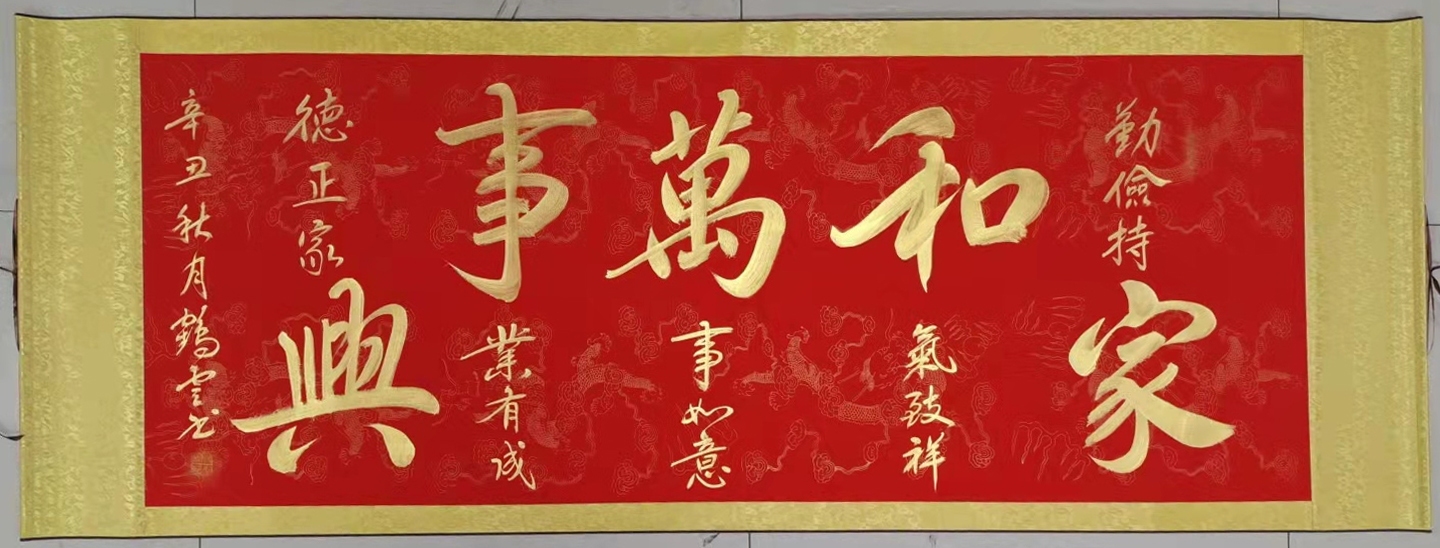 勤儉持家
和氣致祥
萬事如意
事業有成
德正家興
辛丑秋月鶴雲书